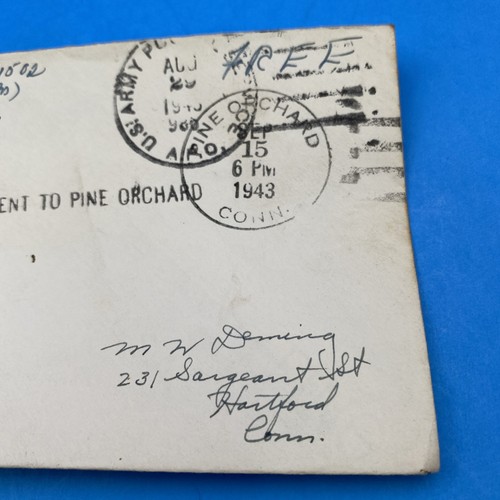 1502
FREE
U.S. ARMY PO
AUG
29
1943
PINE ORCHARD
SEP
15
6 PM
1943
CONN.
ENT TO PINE ORCHARD
M W Deming
231 Sargeant St
Hartford
Conn.